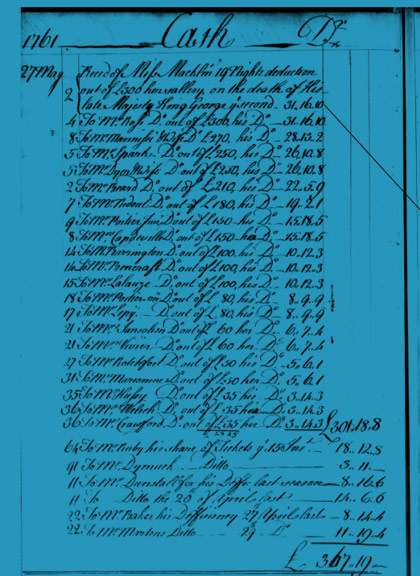 1761 Cash Dr
27 May Rec'd of Miss Macklin 19 Nights deduction
2 out of £300 her sallery, on the death of His
late Majesty King George ye second - 31.16.10
4 To Mr Ross Do out of £300, his Do - 31.16.10
8 To Mr & Wife Do £270, his Do - 28.13.2
5 To Mr Sparks Do out of £250, his Do - 26.10.8
5 To Mr Dyer & Wife Do out of £250, his Do - 26.10.8
2 To Mr Beard Do out of £210, his Do - 22.5.9
7 To Mr Do out of £180, his Do - 19.2.1
9 To Mr Do out of £150 his Do - 15.18.5
8 To Mrs Do out of £150 her Do - 15.18.5
14 To Mr Bennington Do out of £100, his Do - 10.12.3
14 To Mr Bencraft Do out of £100, his Do - 10.12.3
15 To Mr Lalauze Do out of £100, his Do - 10.12.3
18 To Mr Do out of £80, his Do - 8.9.9
17 To Mr Do out of £80, his Do - 8.9.9
21 To Mr Do out of £60 her Do - 6.7.4
21 To Mrs Vivier Do out of £60 her Do - 6.7.4
27 To Mr Do out of £50 his Do - 5.6.1
31 To Mr Do out of £50 her Do - 5.6.1
35 To Mr Do out of £35 his Do - 3.14.3
36 To Mr Do out of £35 her Do - 3.14.3
36 To Mr Crawford Do out of £35 his Do - 3.14.3 £301.18.8
64 To Mr Ruby his share of Tickets ye 15 Inst - 18.12.8
41 To Mr Dymuck - Ditto - 3.11.-
11 To Mr Dunstall for his Deffy last season - 8.16.6
11 To Ditto the 20 of April last - 14.6.6
22 To Mr Baker his Defficiency 27 April last - 8.14.4
22 To Mr Ditto - 29 - Do - 11.19.4
£ 367.19 -